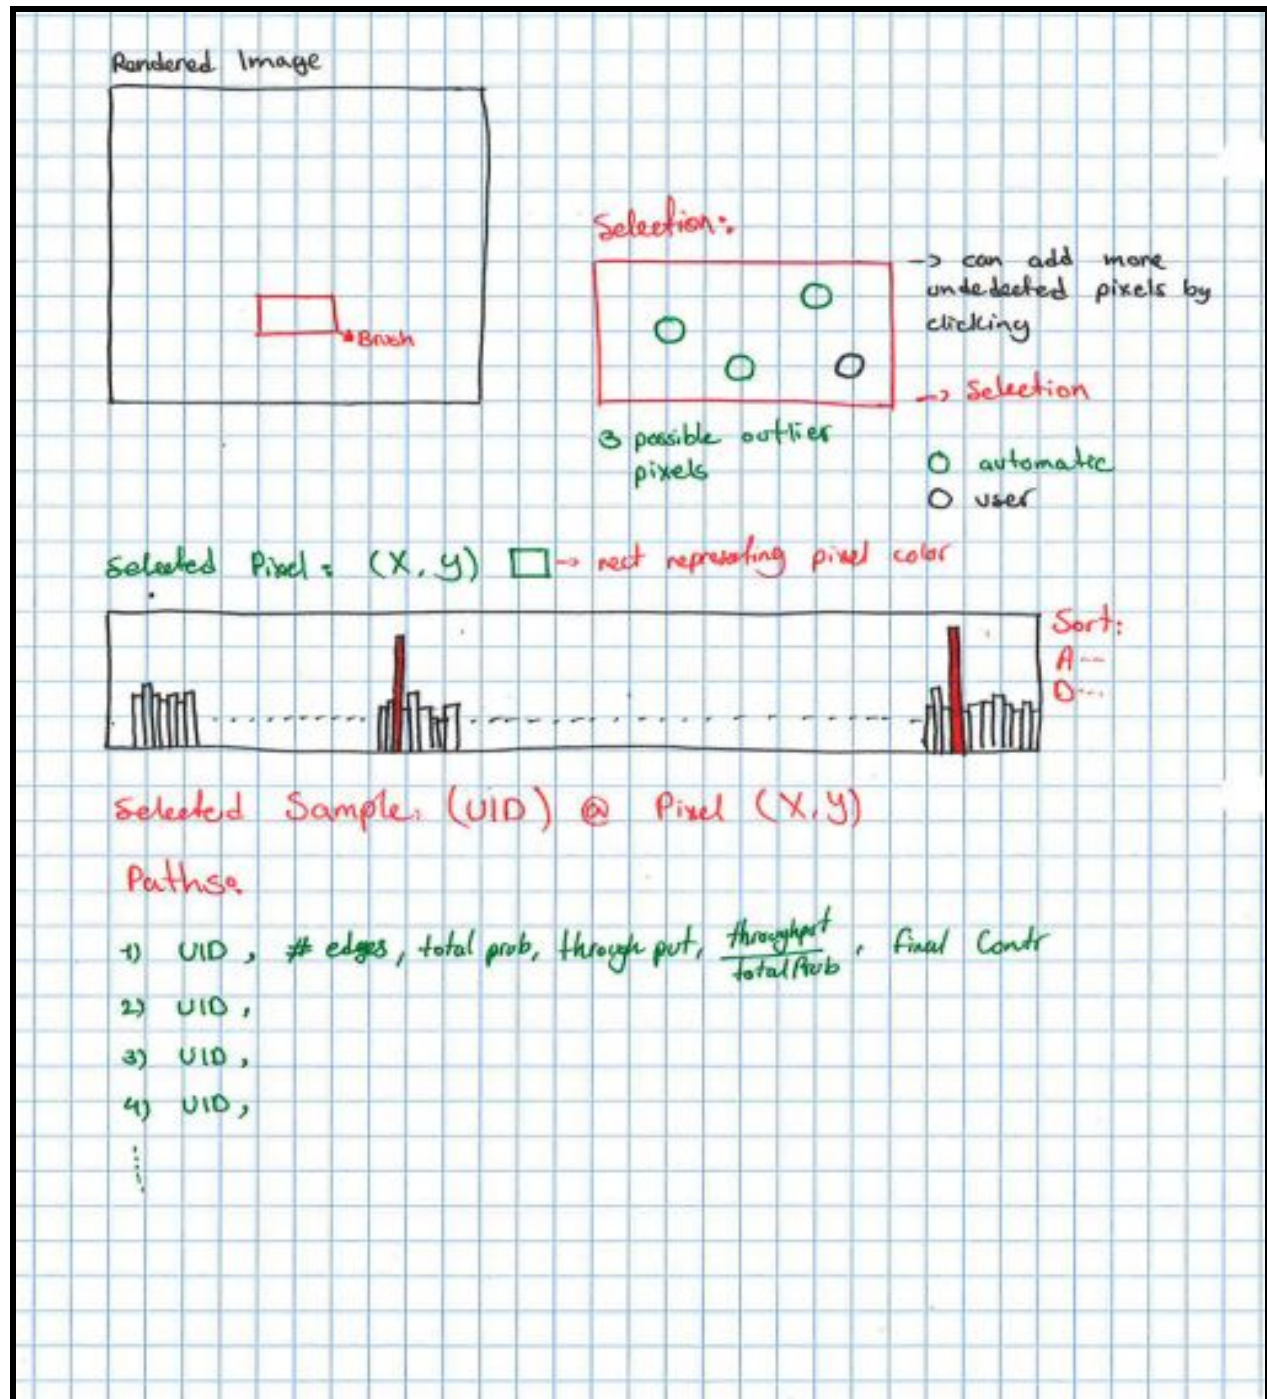 Rendered Image
Brush
Selection:
-> can add more
undedected pixels by
clicking
-> Selection
3 possible outlier
pixels
automatic
user
Selected Pixel: (X, Y)
-> rect representing pixel color
Sort:
A--
D--
Selected Sample: (UID) @ Pixel (X,Y)
Paths:
1) UID, # edges, total prob, through put, throughput / totalProb, final Contr
2) UID,
3) UID,
4) UID,